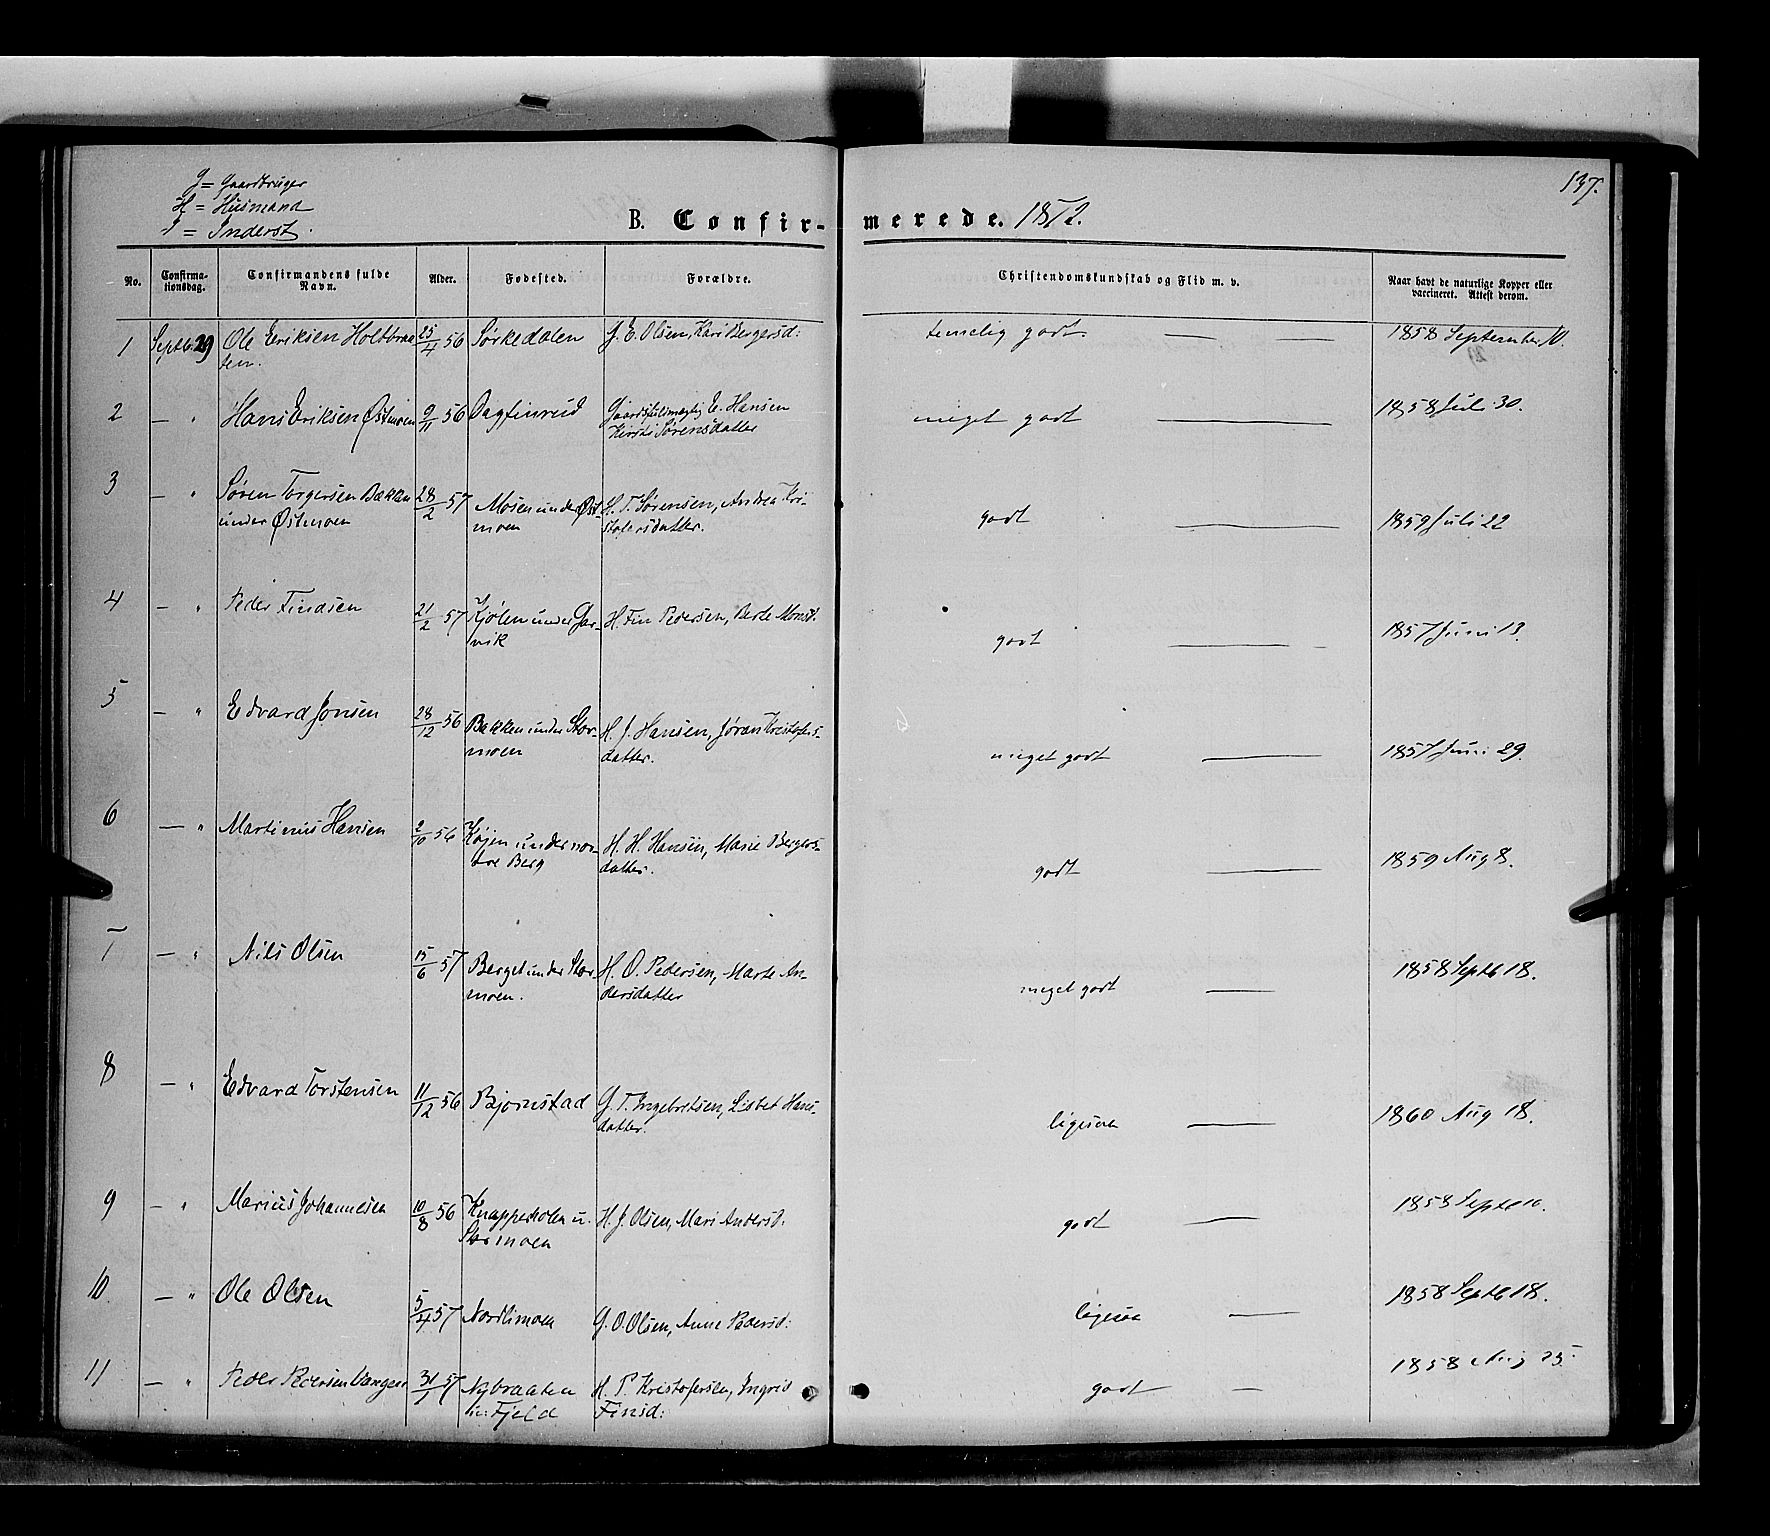 G = Gaardbruger
H = Husmand
I = Inderst.
137.
B. Confirmerede. 1872.
No. Confirmationsdag. Confirmandens fulde Navn. Alder. Fødested. Forældre. Christendomskundskab og Flid m. v. Naar havt de naturlige Kopper eller vaccineret. Attest derom.
1 Septbr 29 Ole Eriksen Holtbraa- 25/4 56 Sørkedalen G. E. Olsen, Kari Bergersd: temelig godt. — — 1858 September 10.
ten.
2 — " Hans Eriksen Østmoen 9/11 56 Dagfinrud Gaardsfuldmægtig E. Hansen meget godt — 1858 Juli 30.
Kirsti Sørensdatter
3 — " Søren Torgersen Bakken 28/2 57 Mosen under Øst- H. T. Sørensen, Andrea Kri- godt — 1859 Juli 22
under Østmoen moen stofersdatter.
4 — " Peder Findsen 21/2 57 Kjølen under Gar- H. Fin Pedersen, Berte Monsd. godt — 1857 Juni 13.
vik
5 — " Edvard Jonsen 28/12 56 Bakken under Stor- H. J. Hansen, Jøran Kristofers- meget godt — 1857 Juni 29.
moen datter.
6 — " Martinius Hansen 2/10 56 Køjen under nor- H. H. Hansen, Marie Bergers- godt — 1859 Aug 8.
dre Berg datter.
7 — " Nils Olsen 15/6 57 Berget under Stor- H. O. Pedersen, Marte An- meget godt — 1858 Septb 18.
moen. dersdatter
8 — " Edvard Torstensen 11/12 56 Bjørnstad G. T. Ingebretsen, Lisbet Hans- ligesaa — 1860 Aug 18.
datter.
9 — " Marius Johannesen 10/8 56 Knappeholen u. H. J. Olsen, Mari Andersd. godt — 1858 Septb 10.
Stormoen
10 — " Ole Olsen 5/4 57 Nordlimoen G. O. Olsen, Anne Pedersd: ligesaa — 1858 Septb 18.
11 — " Peder Pedersen Vangen 31/ 57 Nybraaten H. P. Kristofersen, Ingrid godt — 1858 Aug 25.
un: Fjeld Finsd: